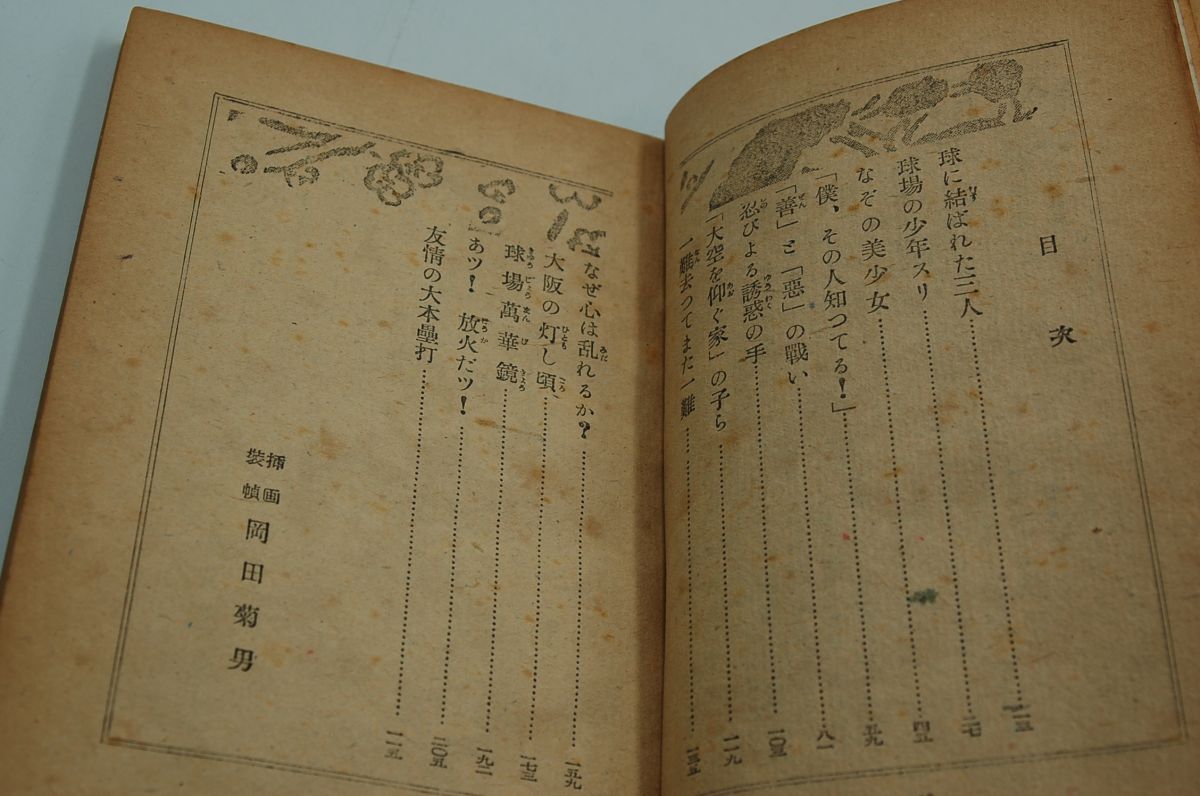 目次
球に結ばれた三人
球場の少年スリ 二七
なぞの美少女 四五
「僕、その人知つてる!」 五九
「善」と「惡」の戰い 八一
忍びよる誘惑の手 一〇五
「大空を仰ぐ家」の子ら 一一九
一難去つてまた一難 一三五
なぜ心は乱れるか? 一五九
大阪の灯し頃 一七三
球場萬華鏡 一九一
あツ! 放火だツ! 二〇五
友情の大本壘打
挿画
装幀 岡田菊男